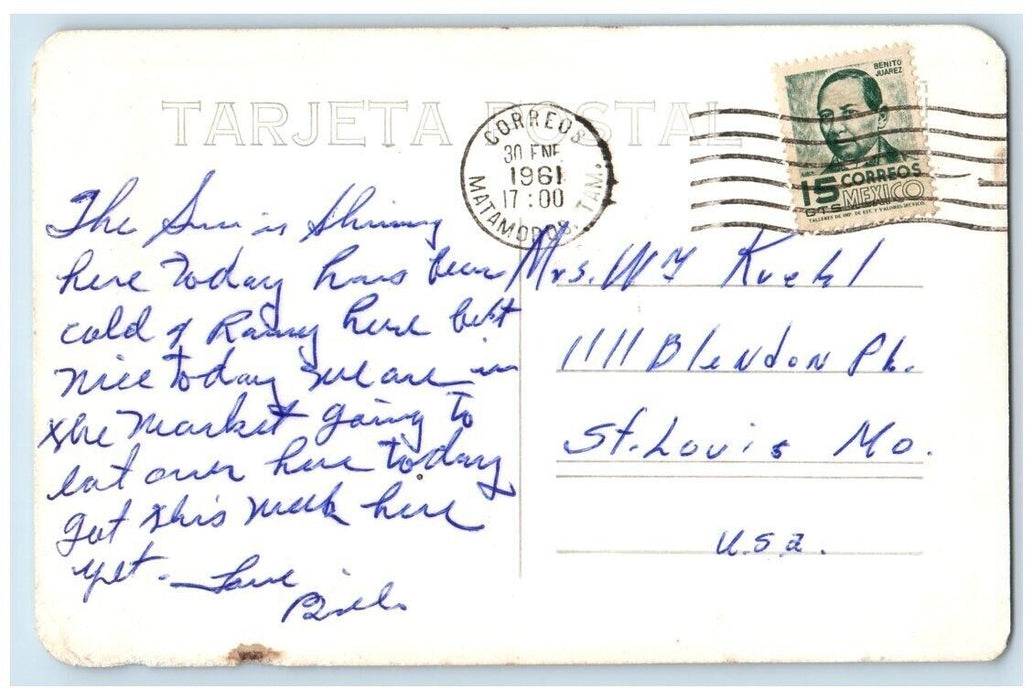 TARJETA POSTAL
CORREOS
30 ENE
1961
17:00
MATAMOROS, TAM.
BENITO
JUAREZ
15 CORREOS
CTS MEXICO
The Sun is Shining
here today has been
cold & Rainy here but
nice today we are in
the market going to
eat over here today
got this week here
yet. Love
Mrs. Wm Kuehl
1111 Blendon Pl.
St. Louis Mo.
U.S.A.